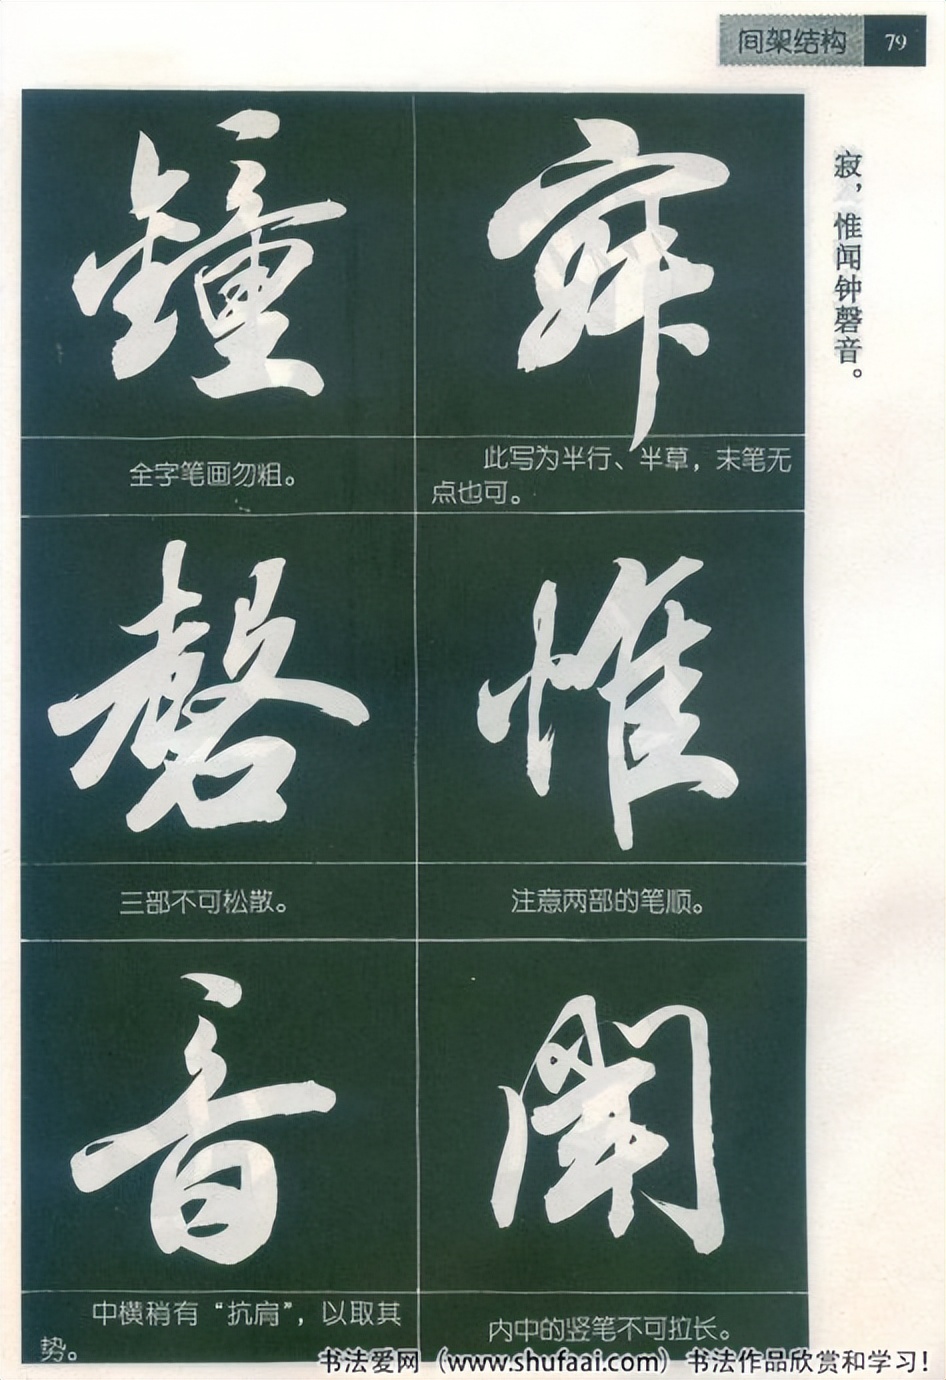 间架结构 79
寂，惟闻钟磬音。
寂
此写为半行、半草，末笔无
点也可。
惟
注意两部的笔顺。
聞
内中的竖笔不可拉长。
鐘
全字笔画勿粗。
磬
三部不可松散。
音
中横稍有“抗肩”，以取其
势。
书法爱网（www.shufaai.com）书法作品欣赏和学习！